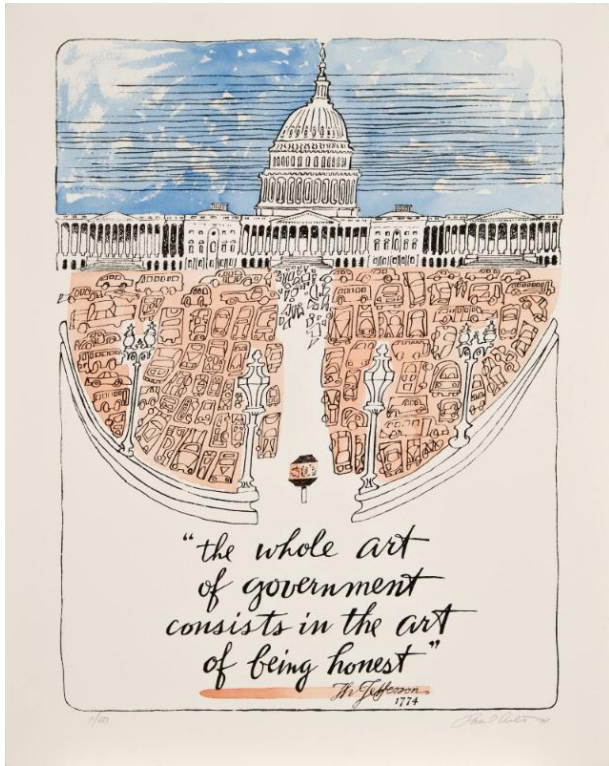 "the whole art
of government
consists in the art
of being honest"
Th Jefferson
1774